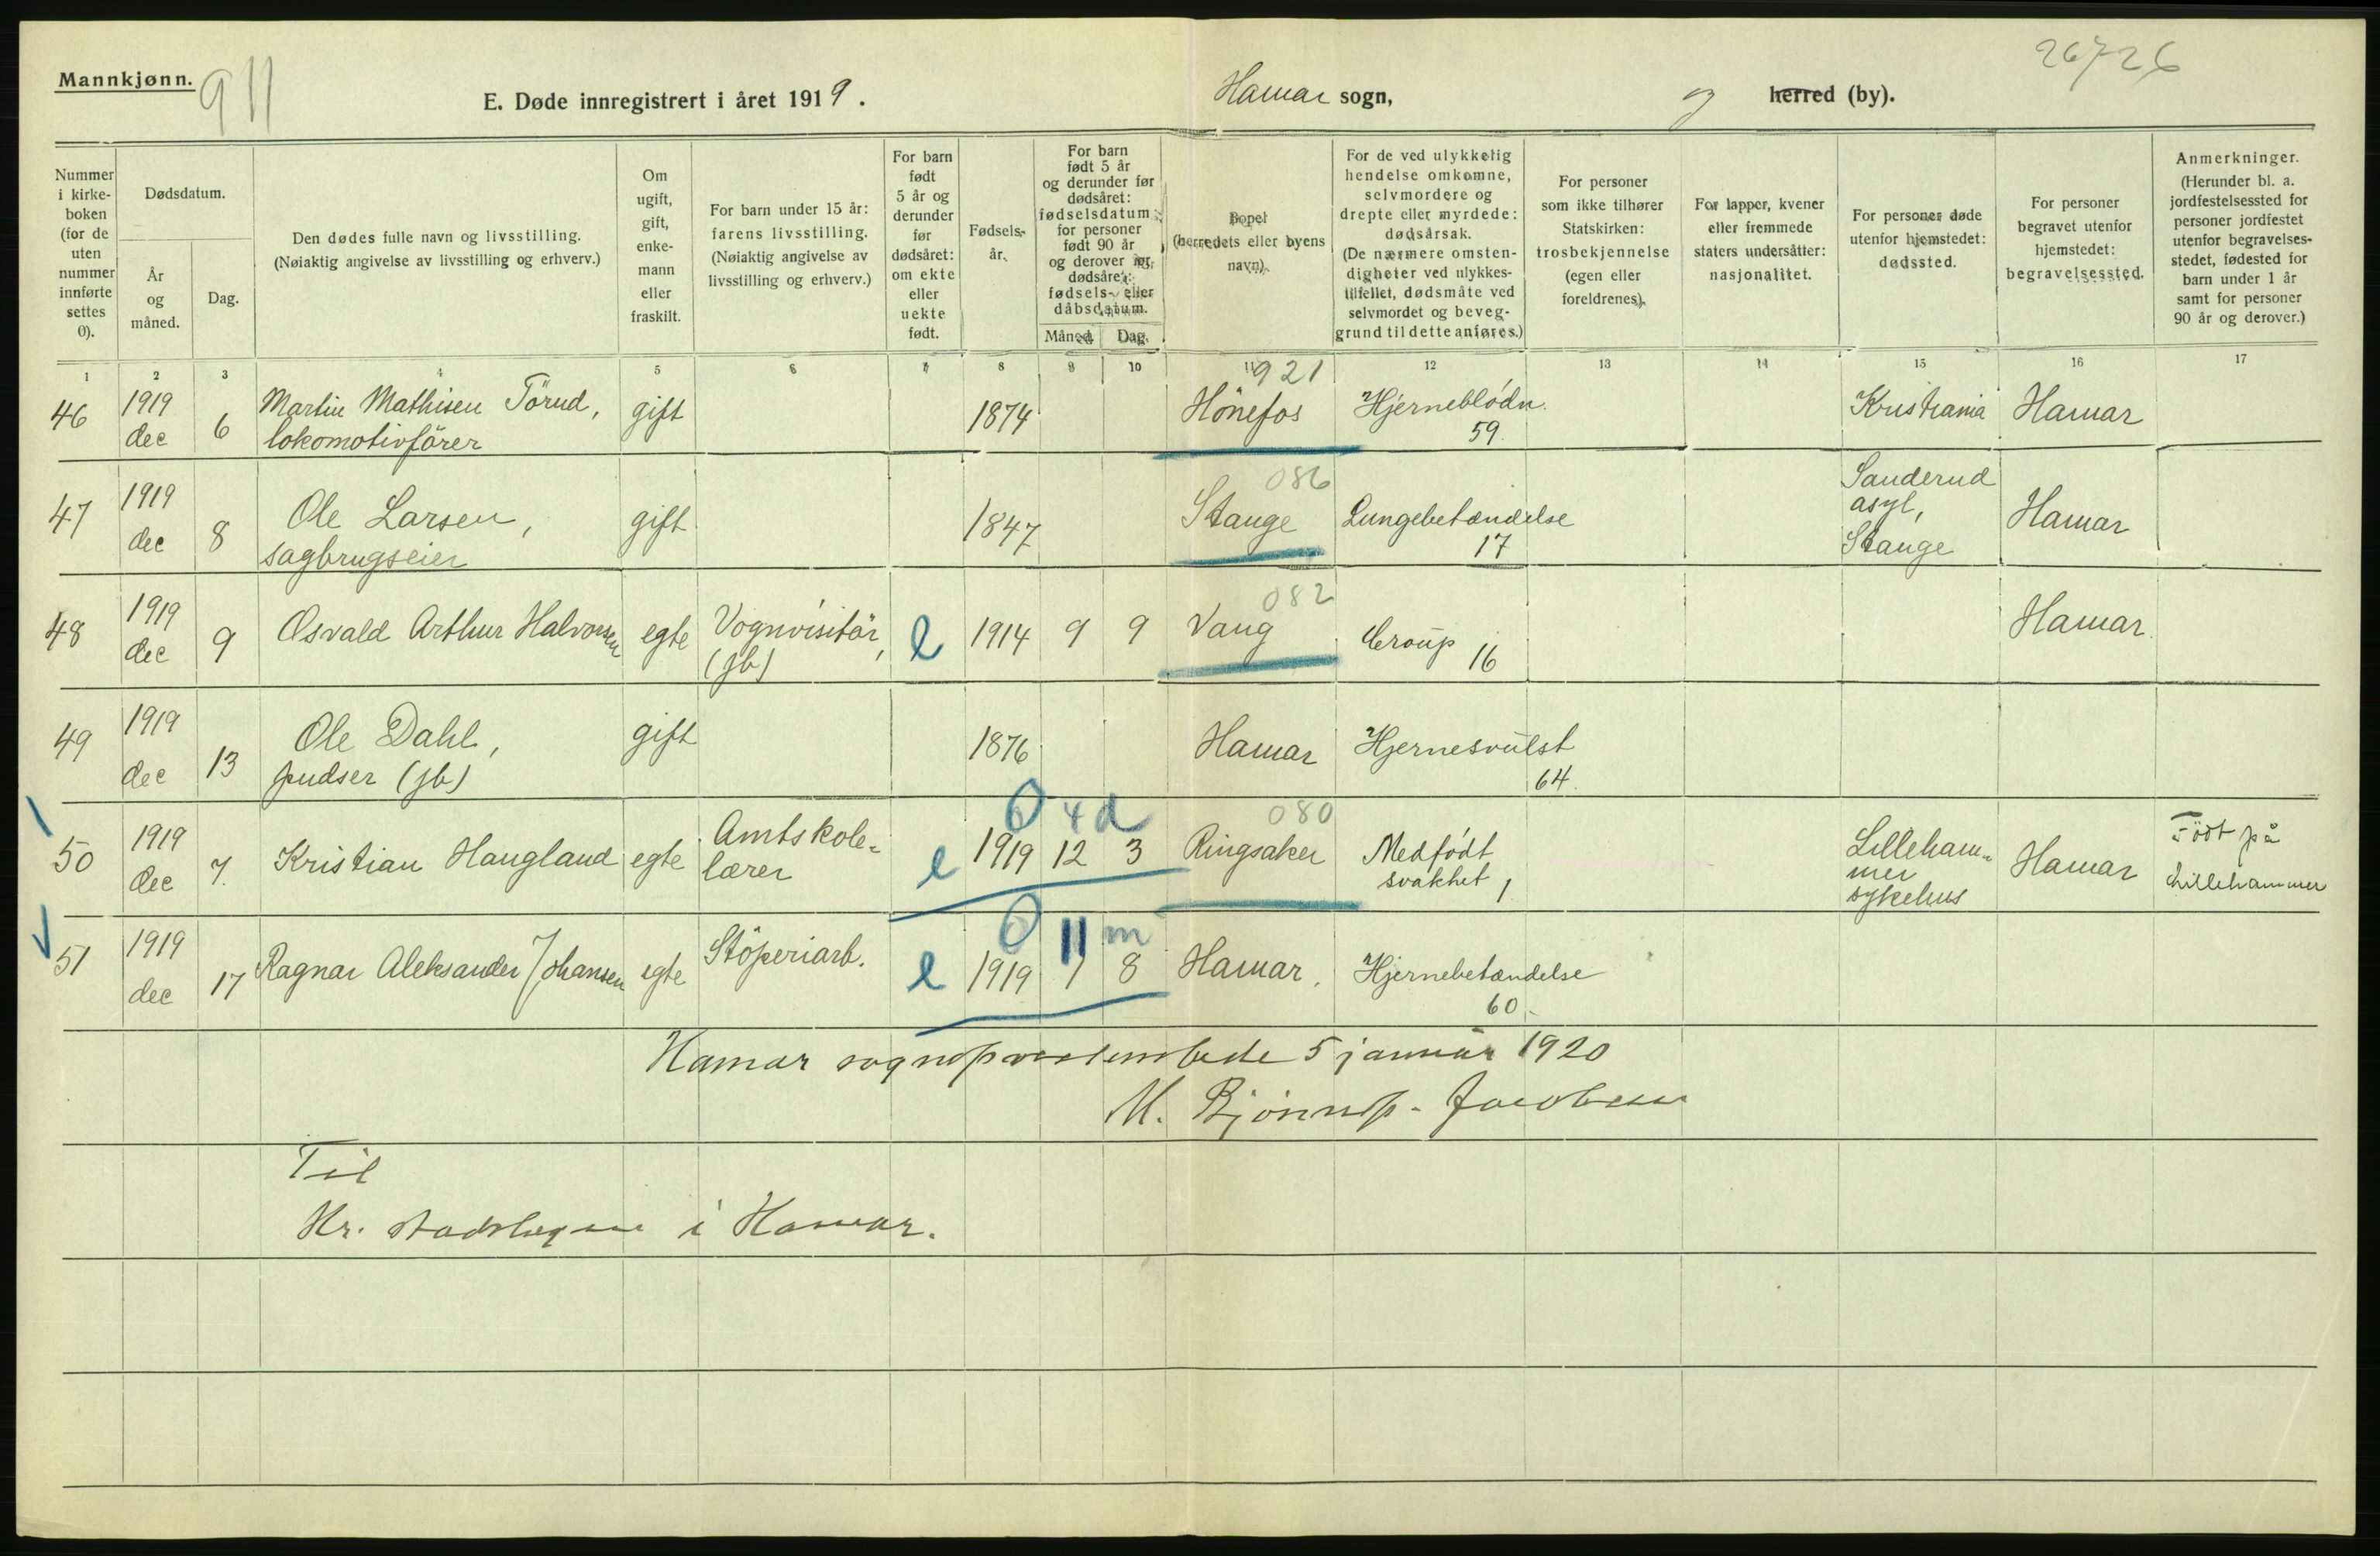 Mannkjønn.
911
E. Døde innregistrert i året 1919.
Hamar sogn,
og herred (by).
26726
Nummer i kirke-boken (for de uten nummer innførte settes 0).
Dødsdatum.
År og måned.
Dag.
Den dødes fulle navn og livsstilling.
(Nøiaktig angivelse av livsstilling og erhverv.)
Om ugift, gift, enke-mann eller fraskilt.
For barn under 15 år: farens livsstilling.
(Nøiaktig angivelse av livsstilling og erhverv.)
For barn født 5 år og derunder før dødsåret: om ekte eller uekte født.
Fødsels-år.
For barn født 5 år og derunder før dødsåret: fødselsdatum; for personer født 90 år og derover før dødsåret: fødsels- eller dåbsdatum.
Måned. Dag.
Bopel (herredets eller byens navn).
For de ved ulykkelig hendelse omkomne, selvmordere og drepte eller myrdede: dødsårsak.
(De nærmere omsten-digheter ved ulykkes-tilfellet, dødsmåte ved selvmordet og beveg-grund til dette anføres.)
For personer som ikke tilhører Statskirken: trosbekjennelse (egen eller foreldrenes).
For lapper, kvener eller fremmede staters undersåtter: nasjonalitet.
For personer døde utenfor hjemstedet: dødssted.
For personer begravet utenfor hjemstedet: begravelsessted.
Anmerkninger.
(Herunder bl. a. jordfestelsessted for personer jordfestet utenfor begravelses-stedet, fødested for barn under 1 år samt for personer 90 år og derover.)
1 2 3 4 5 6 7 8 9 10 11 12 13 14 15 16 17
921
46 1919 dec 6 Martin Mathisen Törud, lokomotivförer gift 1874 Hönefos Hjerneblödn. 59. Kristiania Hamar
086
47 1919 dec 8 Ole Larsen, sagbrugseier gift 1847 Stange Lungebetændelse 17 Sanderud asyl, Stange Hamar
082
48 1919 dec 9 Osvald Arthur Halvorsen egte Vognvisitör, (jb) e 1914 9 9 Vang Croup 16 Hamar.
49 1919 dec 13 Ole Dahl, pudser (jb) gift 1876 Hamar Hjernesvulst 64.
0 4 d 080
50 1919 dec 7. Kristian Haugland egte Amtskole-lærer e 1919 12 3 Ringsaker Medfödt svakhet 1 Lilleham-mer sykehus Hamar Född på Lillehammer
0 11 m
51 1919 dec 17 Ragnar Aleksander Johansen egte Stöperiarb. e 1919 1 8 Hamar. Hjernebetændelse 60.
Hamar sogneprestembede 5 januar 1920
M. Bjönnes-Jacobsen
Til
Hr. stadslægen i Hamar.